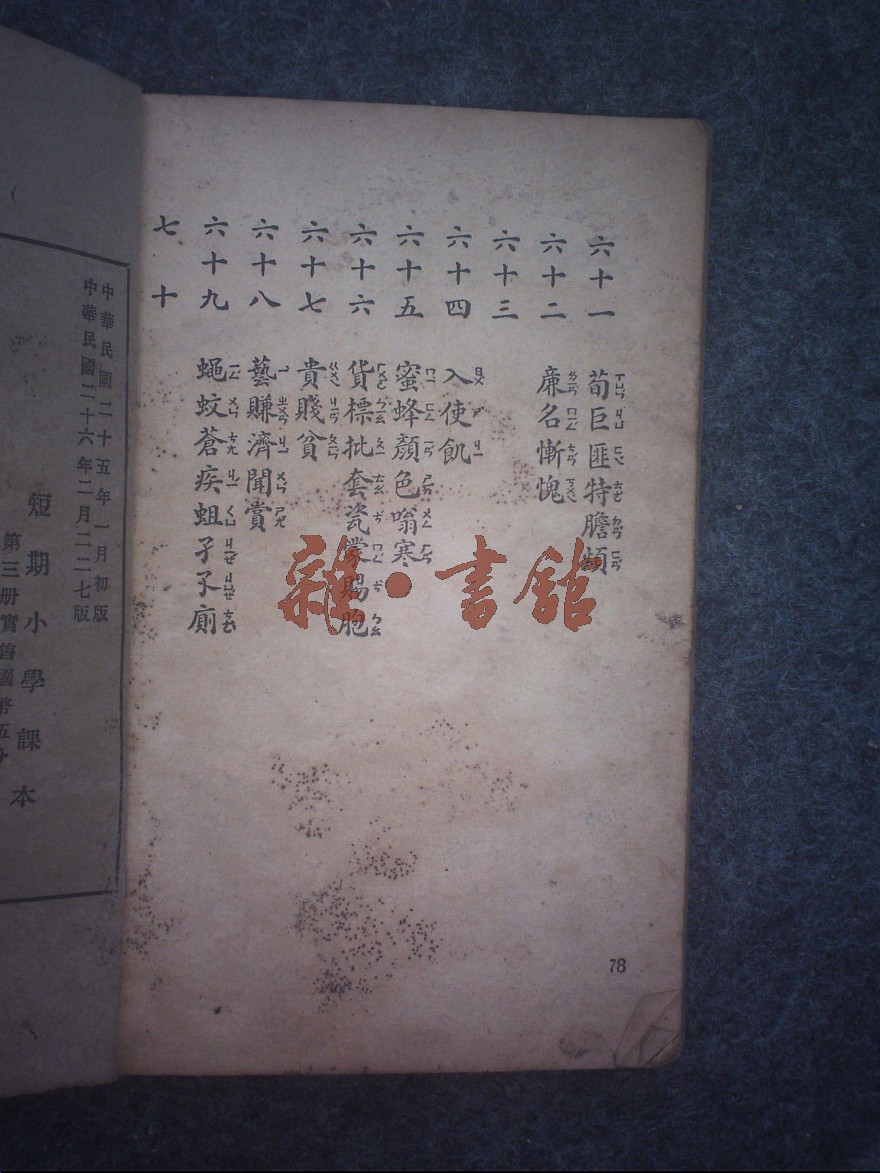 六十一 荀巨匪特膽煩
六十二 廉名慚愧
六十三
六十四 入使飢
六十五 蜜蜂顏色嗡寒
六十六 貨標批套瓷蒙賜胞
六十七 貴賤貧
六十八 藝賺濟聞賞
六十九 蠅蚊蒼疾蛆孑孓廁
七十
78
雜·書館
中華民國二十五年一月初版
中華民國二十六年二月二二七版
短期小學課本
第三册實售國幣五分